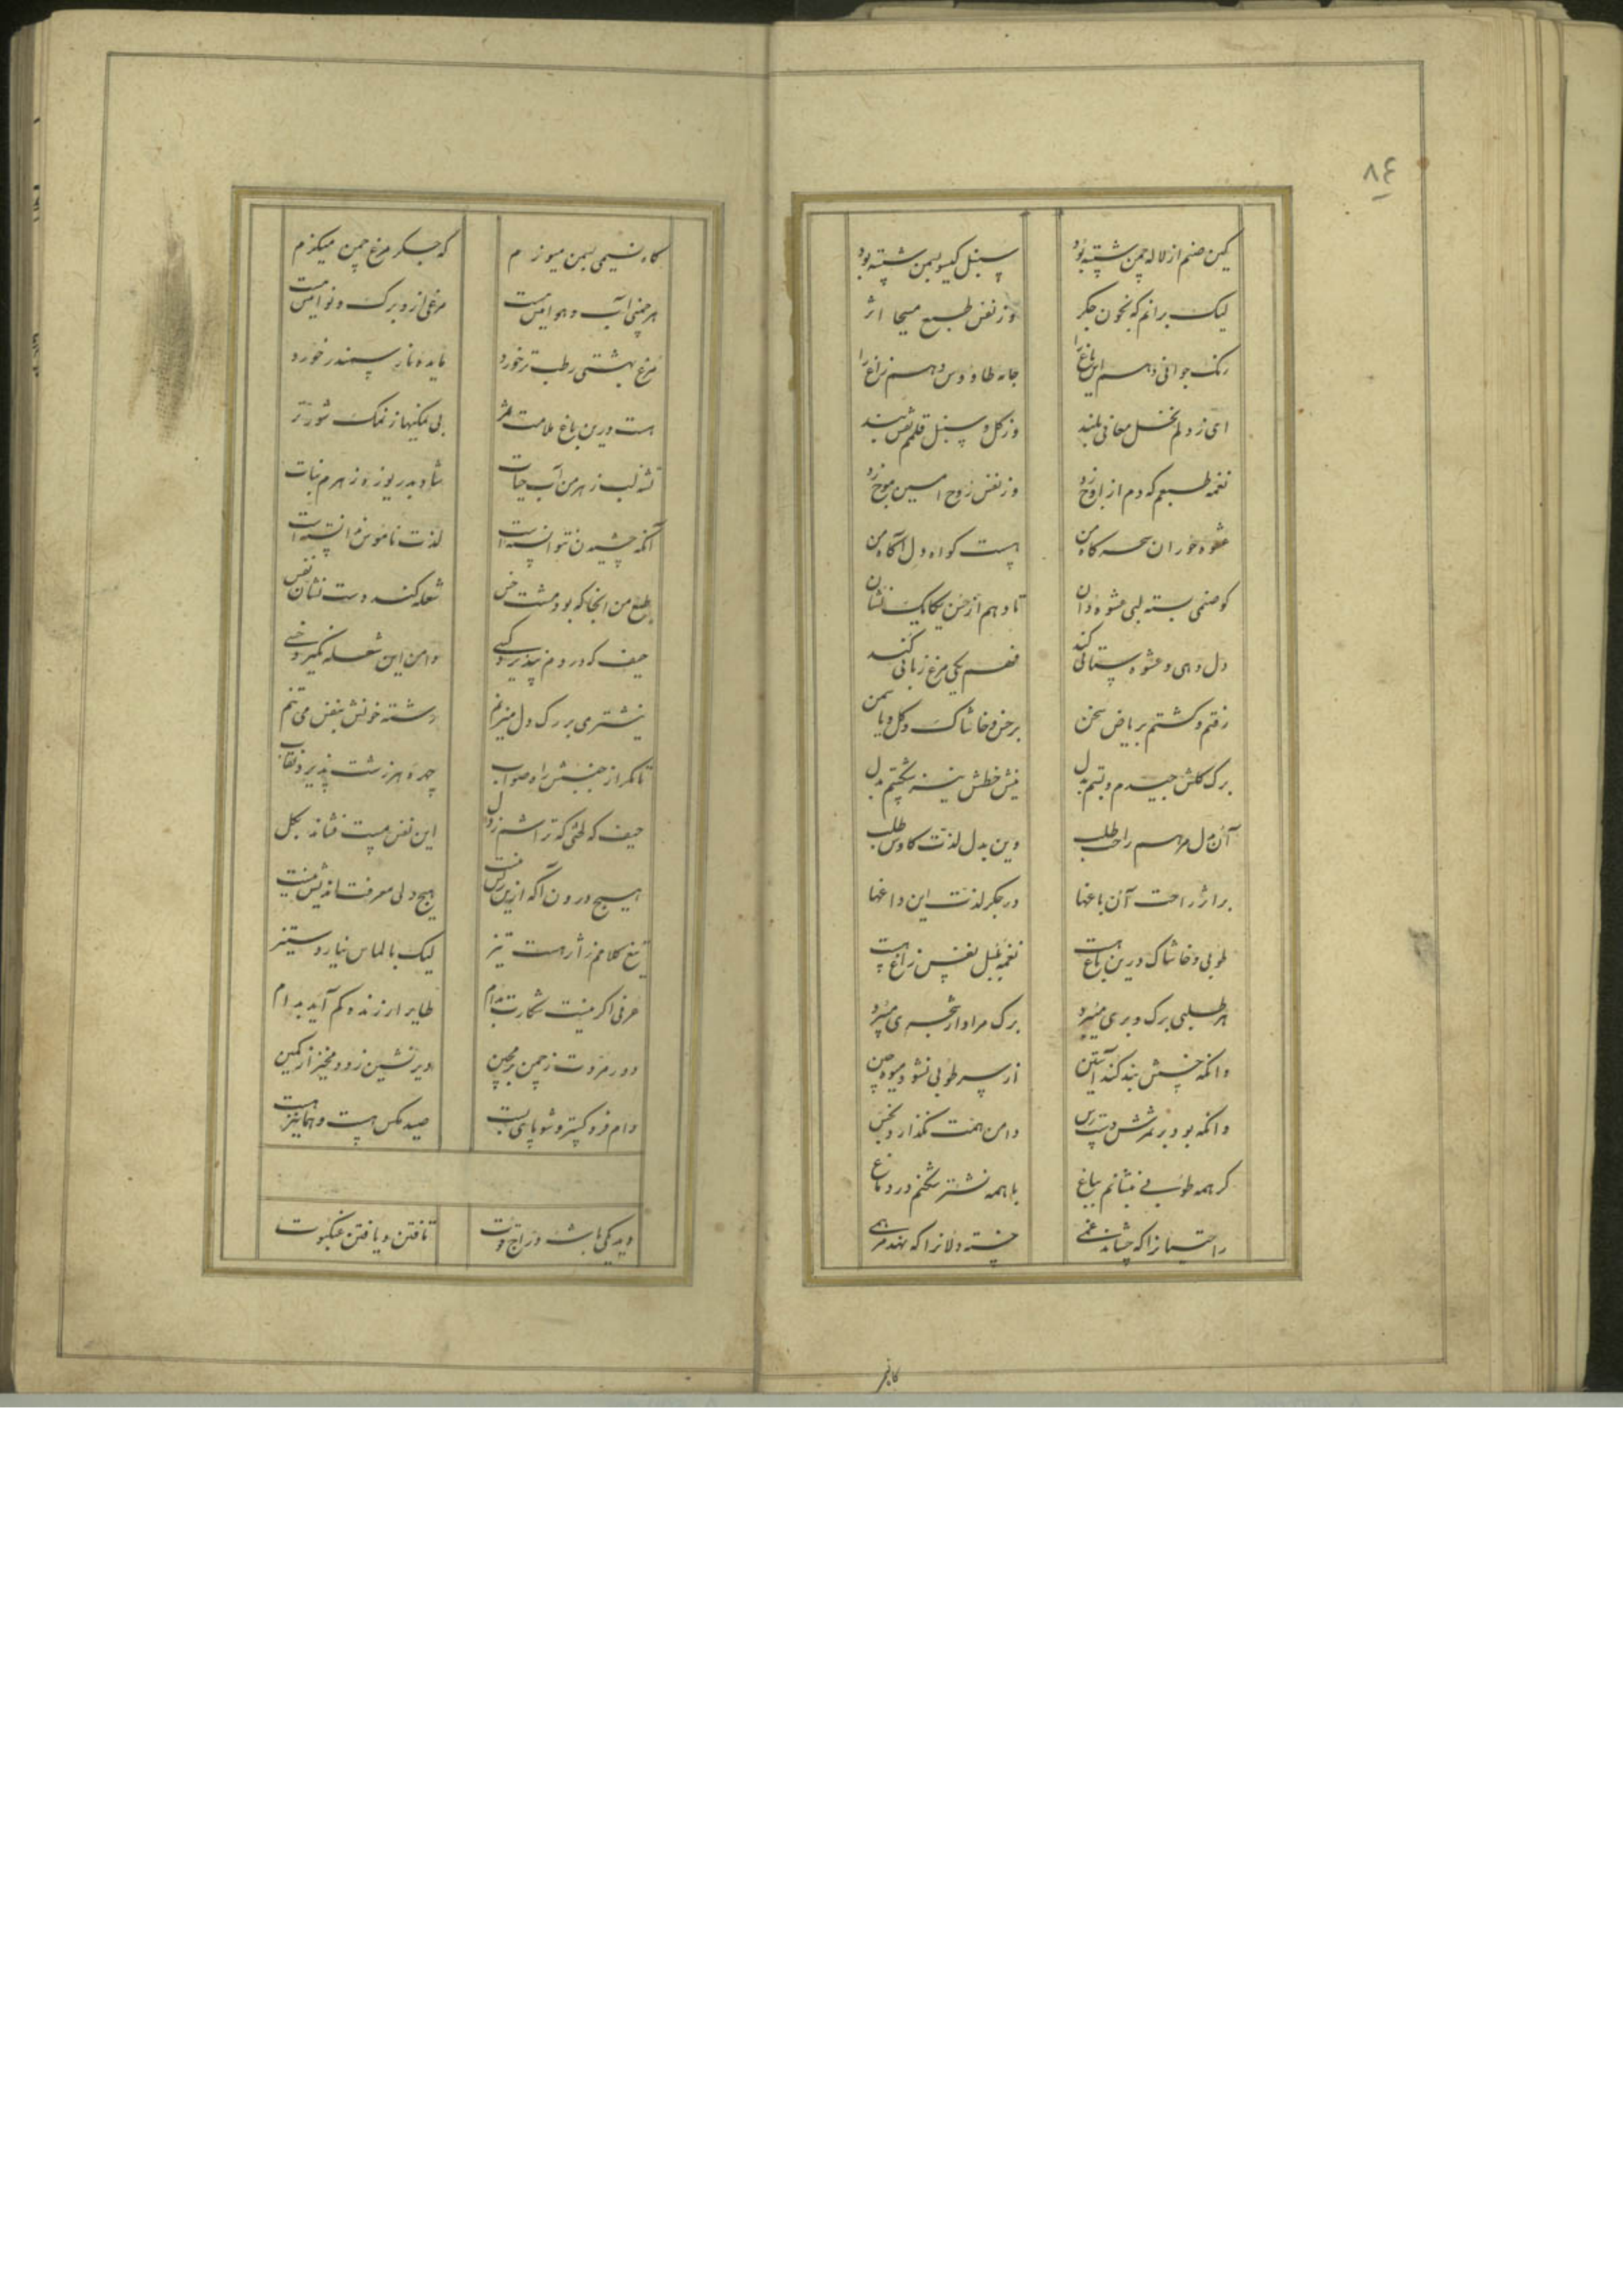 ۸٤
کین صنم از لاله چمن شسته بود سنبل گیسو بسمن شسته بود
لیک برانم که بخون جگر وز نفس طبع مسیحا اثر
رنک جوانی دهم این باغ را جامه طاووس دهم زاغ را
ای ز دلم نخل معانی بلند وز گل و سنبل قلمم نقش بند
نغمه طبعم که دم از اوج زد وز نفس روح امین موج زد
عشوه حوران سحرگاه من هست گواه دل آگاه من
کو صنمی بسته لبی عشوه دان تا دهم از حسن یکایک نشان
دل دهی و عشوه ستانی کند فهم یکی مرغ زبانی کند
رفتم و کشتم بریاض سخن بر خس و خاشاک و گل و یاسمن
برک کلش چیدم و بستم بدل نیش خطش نیز شکستم بدل
آن دل مرهم راحت طلب وین بدل لذت کاوش طلب
بر اثر راحت آن باغها در جگر لذت این داغها
طوبی و خاشاک درین باغ هست نغمه بلبل نفس زاغ هست
هر طلبی برک و بری میبرد برک مراد از شجری میبرد
وانکه خسش بند کند آستین از سر طوبی نشود میوه چین
وانکه بود بر ثمرش دست رس دامن همت نگذارد بخس
گر همه طوبی بنشانم بباغ با همه نشتر شکنم در دماغ
راحتیانرا که چشاند غمی خسته دلانرا که نهد مرهمی
گاه نسیمی بسمن میوزم که جگر مرغ چمن میگزم
هر چمنی آب و هوائیش هست مرغی ازو برک و نوائیش هست
مرغ بهشتی رطب تر خورد مایده نار سمندر خورد
هست درین باغ ملامت ثمر بی نمکیها ز نمک شورتر
تشنه لب زهر من آب حیات شاد بدریوزه زهرم نبات
آنکه چشیدن نتوانسته است لذت ناموس من دانسته است
طبع من انجا که بود مشت خس شعله کند دست نشان نفس
حیف که دردم نپذیرد کسی دامن این شعله نگیرد خسی
نیشتری بر رک دل میزنم رشته خونش بنفس می تنم
تا مگر از جنبش راه صواب چهره هر زشت پذیرد نقاب
حیف که نقشی که تراشم ز دل این نفس پست نشاند بگل
هیچ درون آگه ازین ریش نیست هیچ دلی معرفت اندیش نیست
تیغ کلامم ز اثر هست تیز لیک بالماس نیارد ستیز
عرفی اگر نیست شکارت مدام طایر ارزنده کم آید بدام
دور مروت ز چمن بر مچین دیر نشین زود مخیز از کمین
دام فرو گستر و شو پای بست صید مکس هست و هما نیز هست
دید یکی باشه و دراج قوت تافتن و یافتن عنکبوت